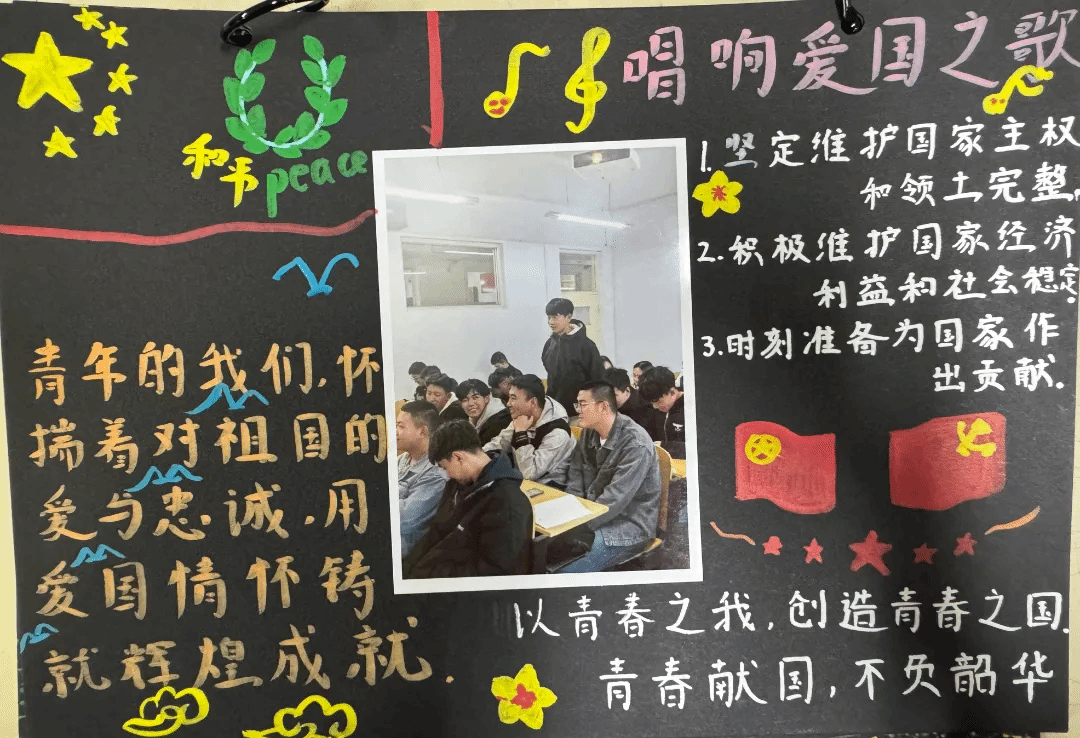 和平
peace
唱响爱国之歌
1.坚定维护国家主权
和领土完整.
2.积极维护国家经济
利益和社会稳定.
3.时刻准备为国家作
出贡献.
青年的我们,怀
揣着对祖国的
爱与忠诚.用
爱国情怀铸
就辉煌成就.
以青春之我,创造青春之国.
青春献国,不负韶华